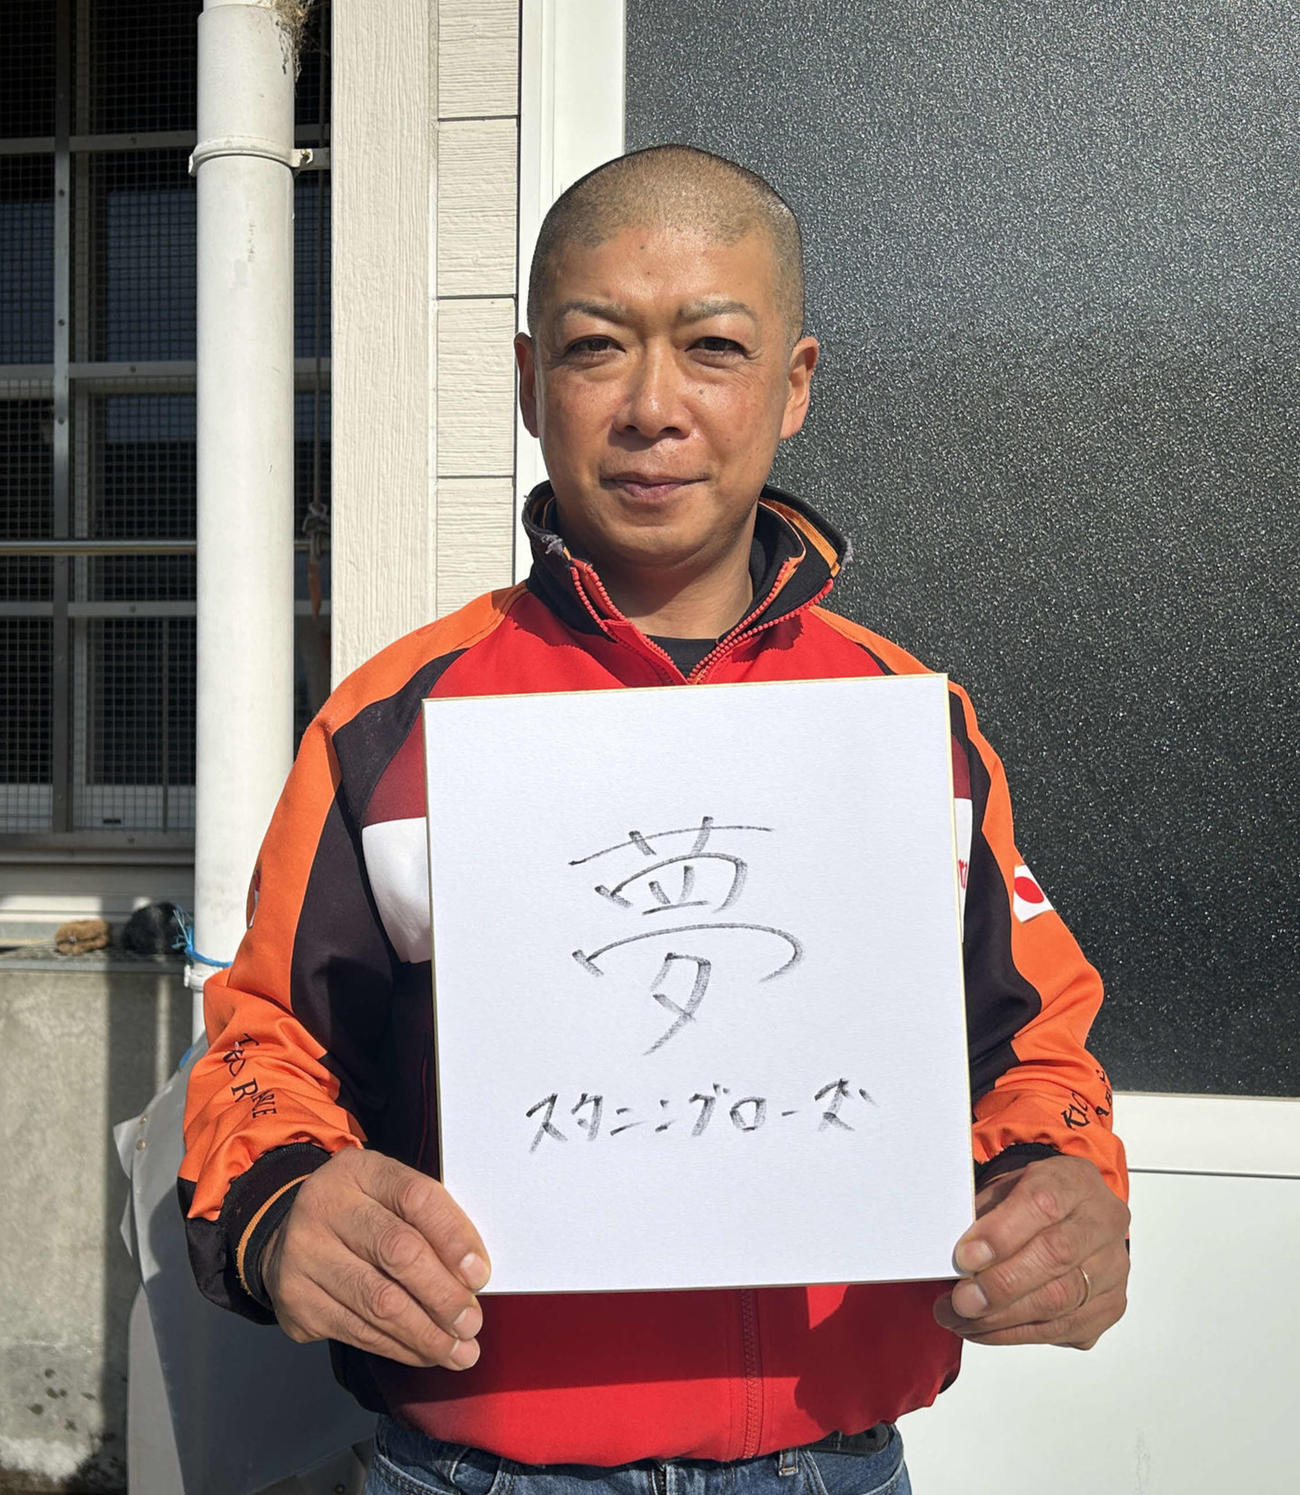 夢
スタニングローズ